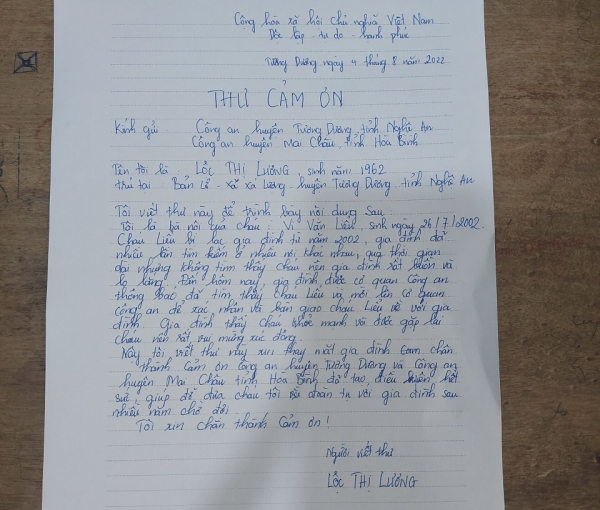 Cộng hòa xã hội Chủ nghĩa Việt Nam
Độc lập - tự do - hạnh phúc
Tương Dương ngày 4 tháng 8 năm 2022
THƯ CẢM ƠN
Kính gửi : Công an huyện Tương Dương, tỉnh Nghệ An
Công an huyện Mai Châu, tỉnh Hòa Bình
Tên tôi là LỘC THỊ LƯƠNG sinh năm 1962
trú tại Bản Lả - xã xá lượng - huyện Tương Dương - tỉnh Nghệ An
Tôi viết thư này để trình bày nội dung sau
Tôi là bà nội của cháu : Vi Văn Liều, sinh ngày 26/7/2002.
Cháu Liều bị lạc gia đình từ năm 2002, gia đình đã
nhiều lần tìm kiếm ở nhiều nơi khác nhau, qua thời gian
dài nhưng không tìm thấy cháu nên gia đình rất buồn và
lo lắng. Đến hôm nay, gia đình được cơ quan Công an
thông báo đã tìm thấy cháu Liều và mời lên cơ quan
công an để xác nhận và bàn giao cháu Liều về với gia
đình. Gia đình thấy cháu khỏe mạnh và được gặp lại
cháu nên rất vui mừng xúc động
Nay tôi viết thư này xin thay mặt gia đình cảm chân
thành cảm ơn Công an huyện Tương Dương và Công an
huyện Mai Châu tỉnh Hòa Bình đã tạo, điều kiện, hết
sức, giúp đỡ, đưa cháu tôi về đoàn tụ với gia đình sau
nhiều năm chờ đợi
Tôi xin chân thành cảm ơn !
Người viết thư
LỘC THỊ LƯƠNG